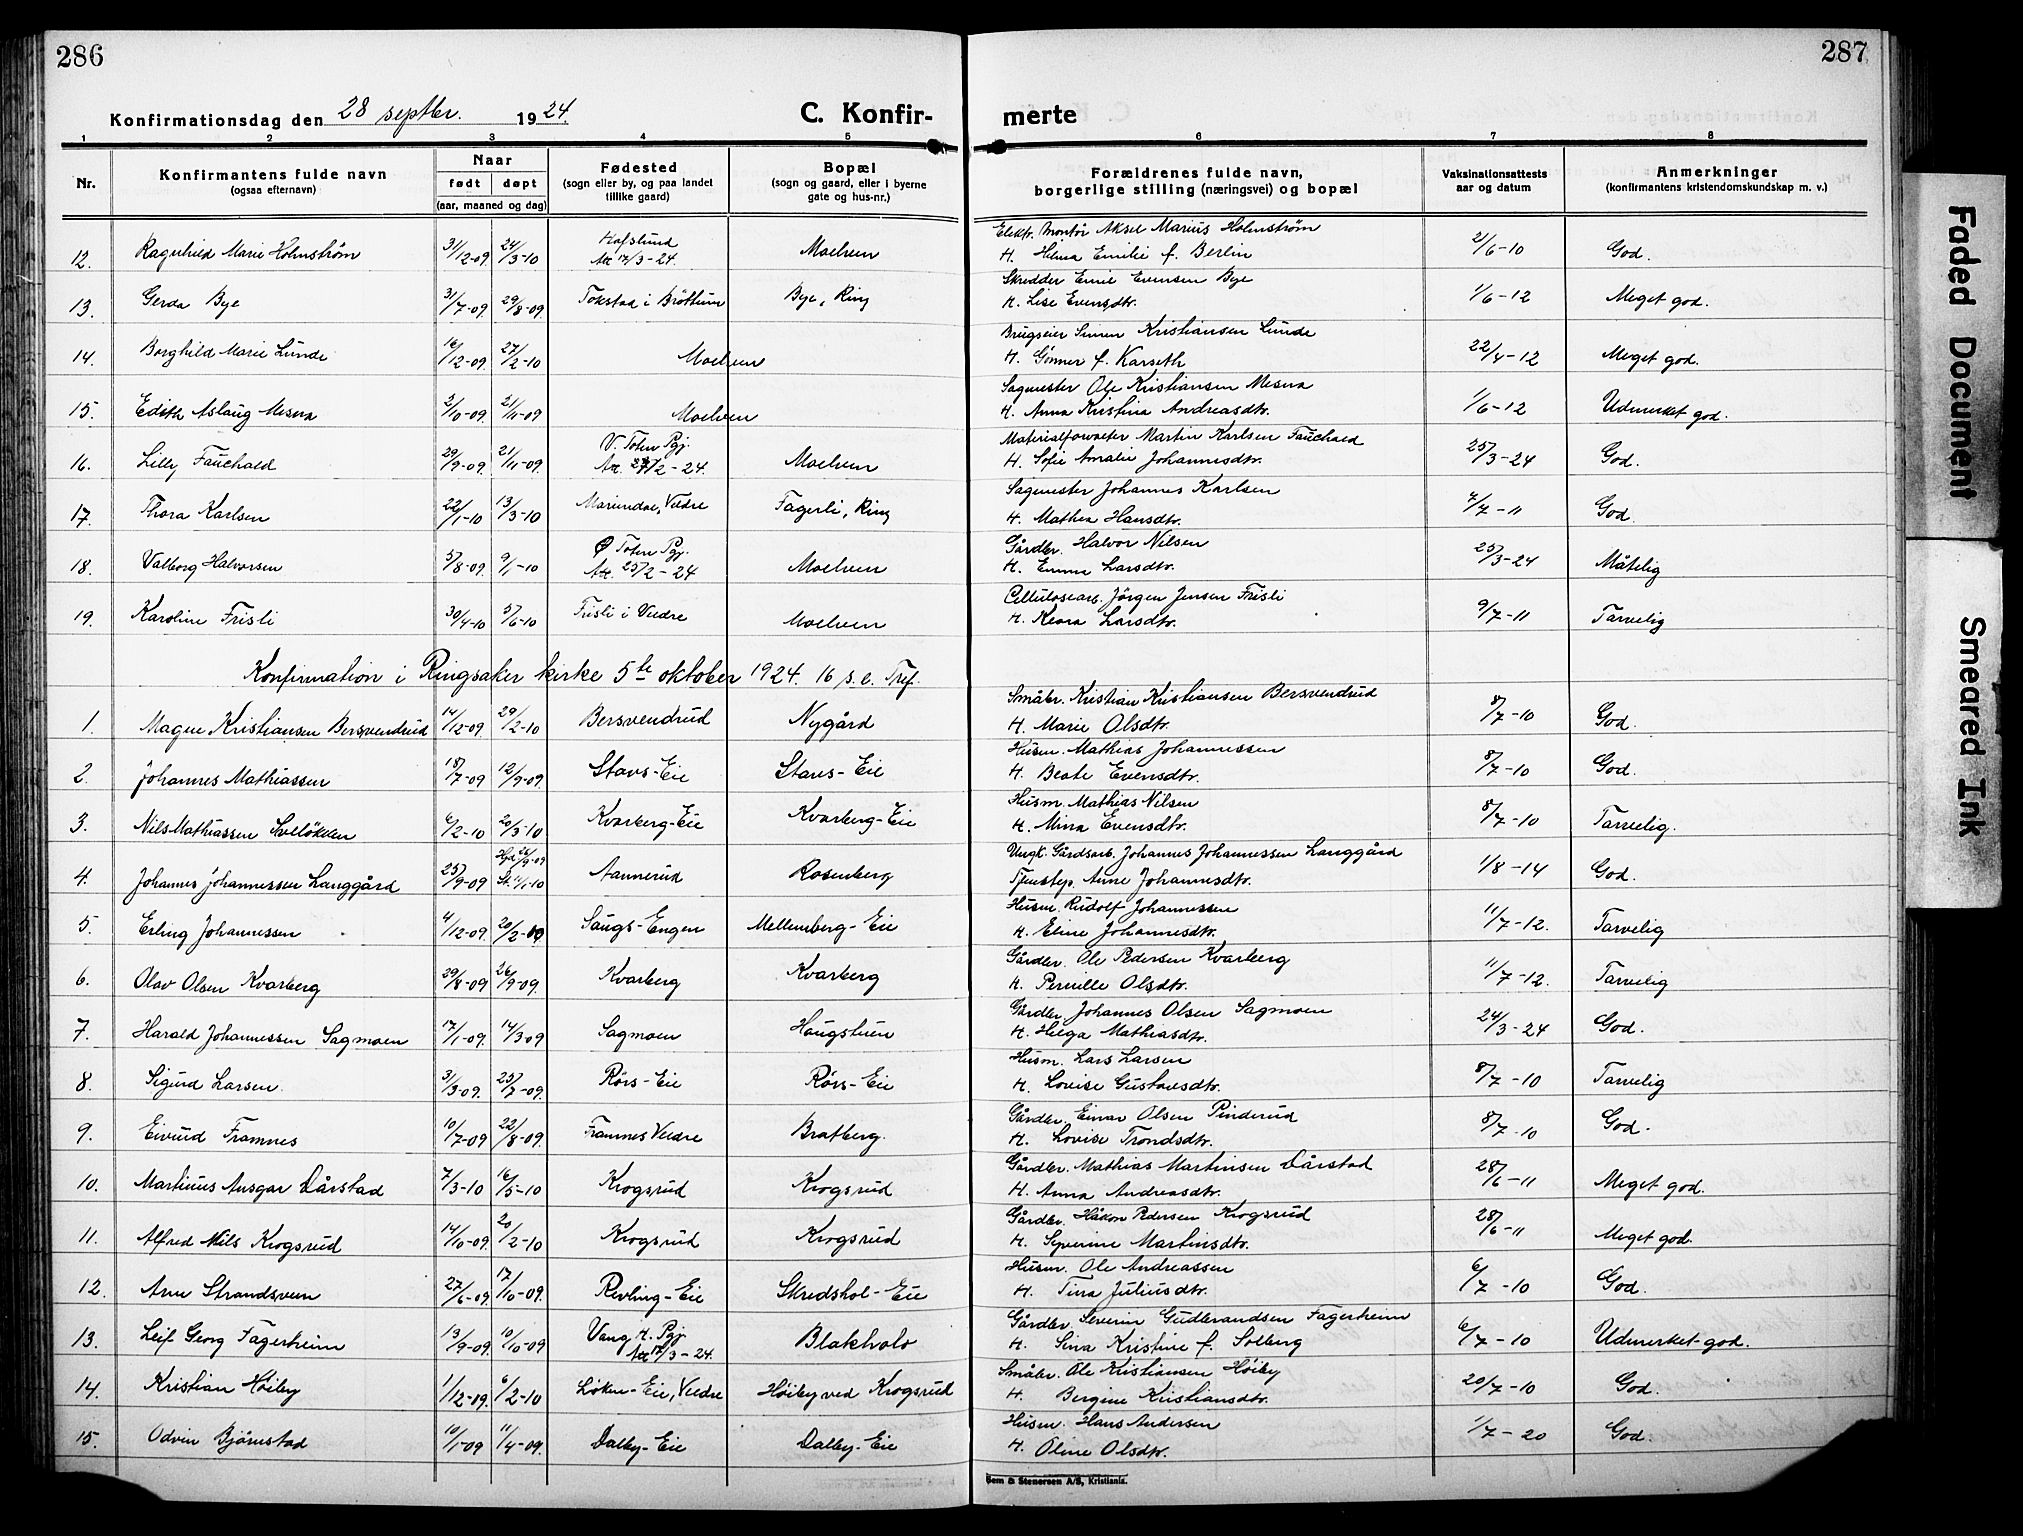 286
287
Konfirmationsdag den 28 septbr. 1924.
C. Konfir-
merte
1 2 3 4 5 6 7 8
Nr.
Konfirmantens fulde navn
(ogsaa efternavn)
Naar
født døpt
(aar, maaned og dag)
Fødested
(sogn eller by, og paa landet
tillike gaard)
Bopæl
(sogn og gaard, eller i byerne
gate og hus-nr.)
Forældrenes fulde navn,
borgerlige stilling (næringsvei) og bopæl
Vaksinationsattests
aar og datum
Anmerkninger
(konfirmantens kristendomskundskap m. v.)
12. Ragnhild Marie Holmstrøm 31/12-09. 24/3-10 Hafslund Att 17/3-24. Moelven Elektr. montør Aksel Marius Holmstrøm 2/6-10 God.
H. Helma Emilie f. Berlin
13. Gerda Bye 31/7-09. 29/8-09. Tokstad i Brøttum Bye, Ring Skredder Emil Evensen Bye 1/6-12 Meget god.
H. Lise Evensdtr.
14. Borghild Marie Lunde 16/12-09. 27/2-10 Moelven Brugseier Simen Kristiansen Lunde 22/4-12 Meget god.
H. Gunner f. Karseth
15. Edith Aslaug Mesna 2/10-09. 21/11-09 Moelven Sagmester Ole Kristiansen Mesna 1/6-12 Udmerket god.
H. Anna Kristina Andreasdtr.
16. Lilly Fauchald 29/9-09. 21/11-09. V. Toten Pgj. Att. 27/2-24. Moelven Materialforvalter Martin Karlsen Fauchald 25/3-24 God.
H. Sofie Amalie Johannesdtr.
17. Thora Karlsen 22/1-10 13/3-10 Mariendal, Veldre Fagerli, Ring Sagmester Johannes Karlsen 7/7-11 God.
H. Mathea Hansdtr.
18. Valborg Halvorsen 5/8-09. 9/1-10 Ø Toten Pgj. Att. 25/2-24 Moelven Gårdbr. Halvor Nilsen 25/3-24 Måtelig
H. Emma Larsdtr.
19. Karoline Frisli 30/4-10 5/6-10 Frisli i Veldre Moelven Cellulosearb. Jørgen Jensen Frisli 9/7-11 Tarvelig
H. Klara Larsdtr.
Konfirmation i Ringsaker kirke 5te oktober 1924. 16 s.e. Tref.
1. Magne Kristiansen Bersvendrud 14/12-09. 29/2-10 Bersvendrud Nygård Småbr. Kristian Kristiansen Bersvendrud 8/7-10 God.
H. Marie Olsdtr.
2. Johannes Mathiassen 18/7-09 12/9-09. Stavs-Eie Stavs-Eie Husm. Mathias Johannessen 8/7-10 God.
H. Beate Evensdtr.
3. Nils Mathiassen Sveløkken 6/2-10 20/3-10 Kvarberg-Eie Kvarberg-Eie Husm. Mathias Nilsen 8/7-10 Tarvelig.
H. Mina Evensdtr.
4. Johannes Johannessen Langgård 25/9-09 Hjd 26/9-09 St. 1/1-10 Aannerud Rosenberg Ungk. Gårdsarb. Johannes Johannessen Langgård 1/8-14 God.
Tjenstep. Anne Johannesdtr.
5. Erling Johannessen 4/12-09. 20/2-10 Saugs-Engen Mellemberg-Eie Husm. Rudolf Johannessen 11/7-12. Tarvelig
H. Eline Johannesdtr.
6. Olav Olsen Kvarberg 29/8-09 26/9-09. Kvarberg Kvarberg Gårdbr. Ole Pedersen Kvarberg 11/7-12. Tarvelig
H. Pernille Olsdtr.
7. Harald Johannessen Sagmoen 17/1-09. 14/3-09 Sagmoen Haugstuen Gårdbr. Johannes Olsen Sagmoen 24/3-24 God.
H. Helga Mathiasdtr.
8. Sigurd Larsen. 31/3-09. 25/7-09. Rørs-Eie Rørs-Eie Husm. Lars Larsen 8/7-10 Tarvelig
H. Lovise Gustavsdtr.
9. Eivind Framnes 10/7-09 22/8-09. Framnes Veldre Bratberg. Gårdbr. Einar Olsen Pinderud 8/7-10 God.
H. Lovise Trondsdtr.
10. Martinus Ansgar Dårstad 7/3-10 16/5-10 Krogsrud Krogsrud Gårdbr. Mathias Martinsen Dårstad 28/6-11 Meget god.
H. Anna Andreasdtr.
11. Alfred Nils Krogsrud 14/10-09. 20/2-10 Krogsrud Krogsrud Gårdbr. Håkon Pedersen Krogsrud 28/6-11 Meget god.
H. Severine Martinsdtr.
12. Arne Strandsveen 27/6-09. 17/10-09. Revling-Eie Skredshol-Eie Husm. Ole Andreassen 6/7-10 God.
H. Tina Juliusdtr.
13. Leif Georg Fagerheim 13/9-09. 10/10-09 Vang H. Pgj. Att 17/3-24. Blakhalv Gårdbr. Severin Gudbrandsen Fagerheim 6/7-10 Udmerket god.
H. Sina Kristine f. Solberg
14. Kristian Høiby 1/12-09. 6/2-10 Løken-Eie, Veldre Høiby ved Krogsrud Småbr. Ole Kristiansen Høiby 20/7-10 God.
H. Bergine Kristiansdtr.
15. Odvin Bjørnstad 10/1-09 11/4-09. Dalby-Eie Dalby-Eie Husm. Hans Andersen 1/7-20 God.
H. Oline Olsdtr.
Sem & Stenersen A/S, Kristiania.
Faded Document
Smeared Ink